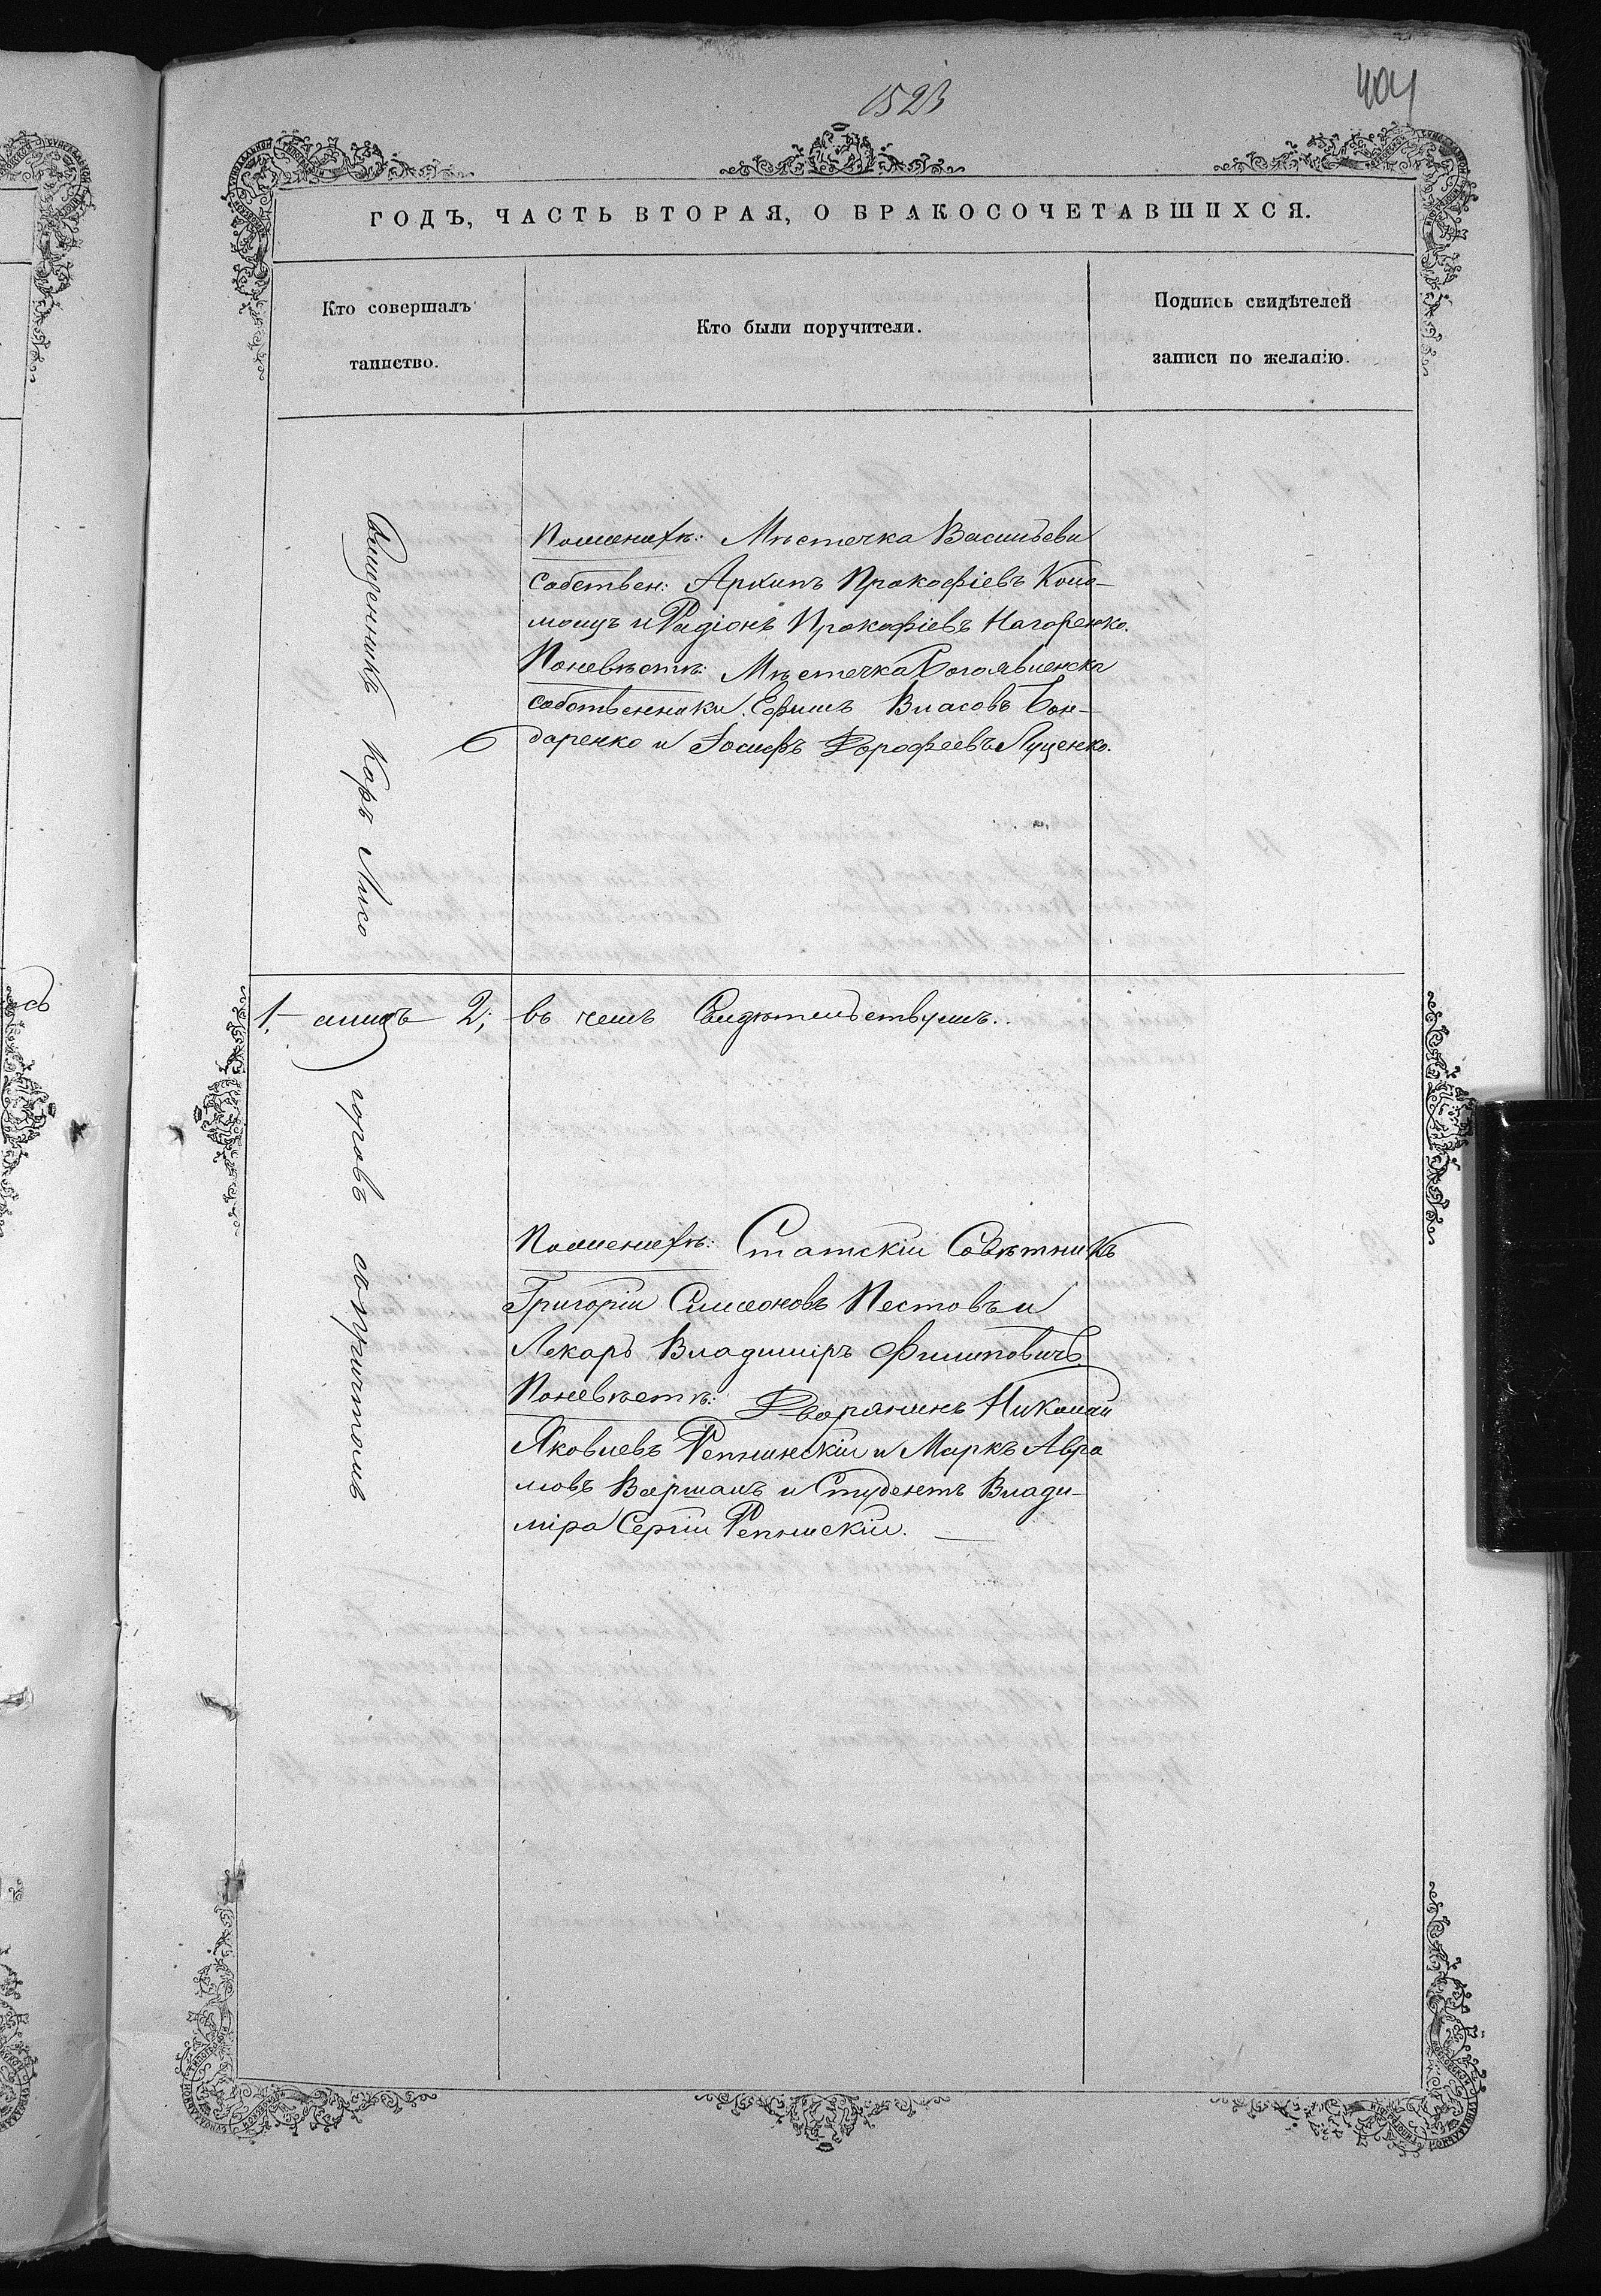 1523
404
ГОДЪ, ЧАСТЬ ВТОРАЯ, О БРАКОСОЧЕТАВШИХСЯ.
Кто совершалъ
таинство.
Кто были поручители.
Подпись свидѣтелей
записи по желанію.
Священникъ Карѣ
Поженихѣ: Мѣстечка Васильева
Собствен: Архипъ Прокофіевъ Коло-
моицъ и Радіонъ Прокофіевъ Нагоренко.
Поневѣстѣ: Мѣстечка Богоявленска
собственники Ефимъ Власовъ Бон-
даренко и Іосифъ Дорофеевъ Луценко.
1, 2, въ чемъ Свидѣтельствуемъ.
Поженихѣ: Статскій Совѣтникъ
Григорій Симеоновъ Пестовъ и
Лекарь Владиміръ Филиповичъ
Поневѣстѣ: Дворянинъ Николай
Яковлевъ Репнинскій и Маркъ Авра
мовъ Варшамъ и Студентъ Влади-
міра Сергій Репнинскій.